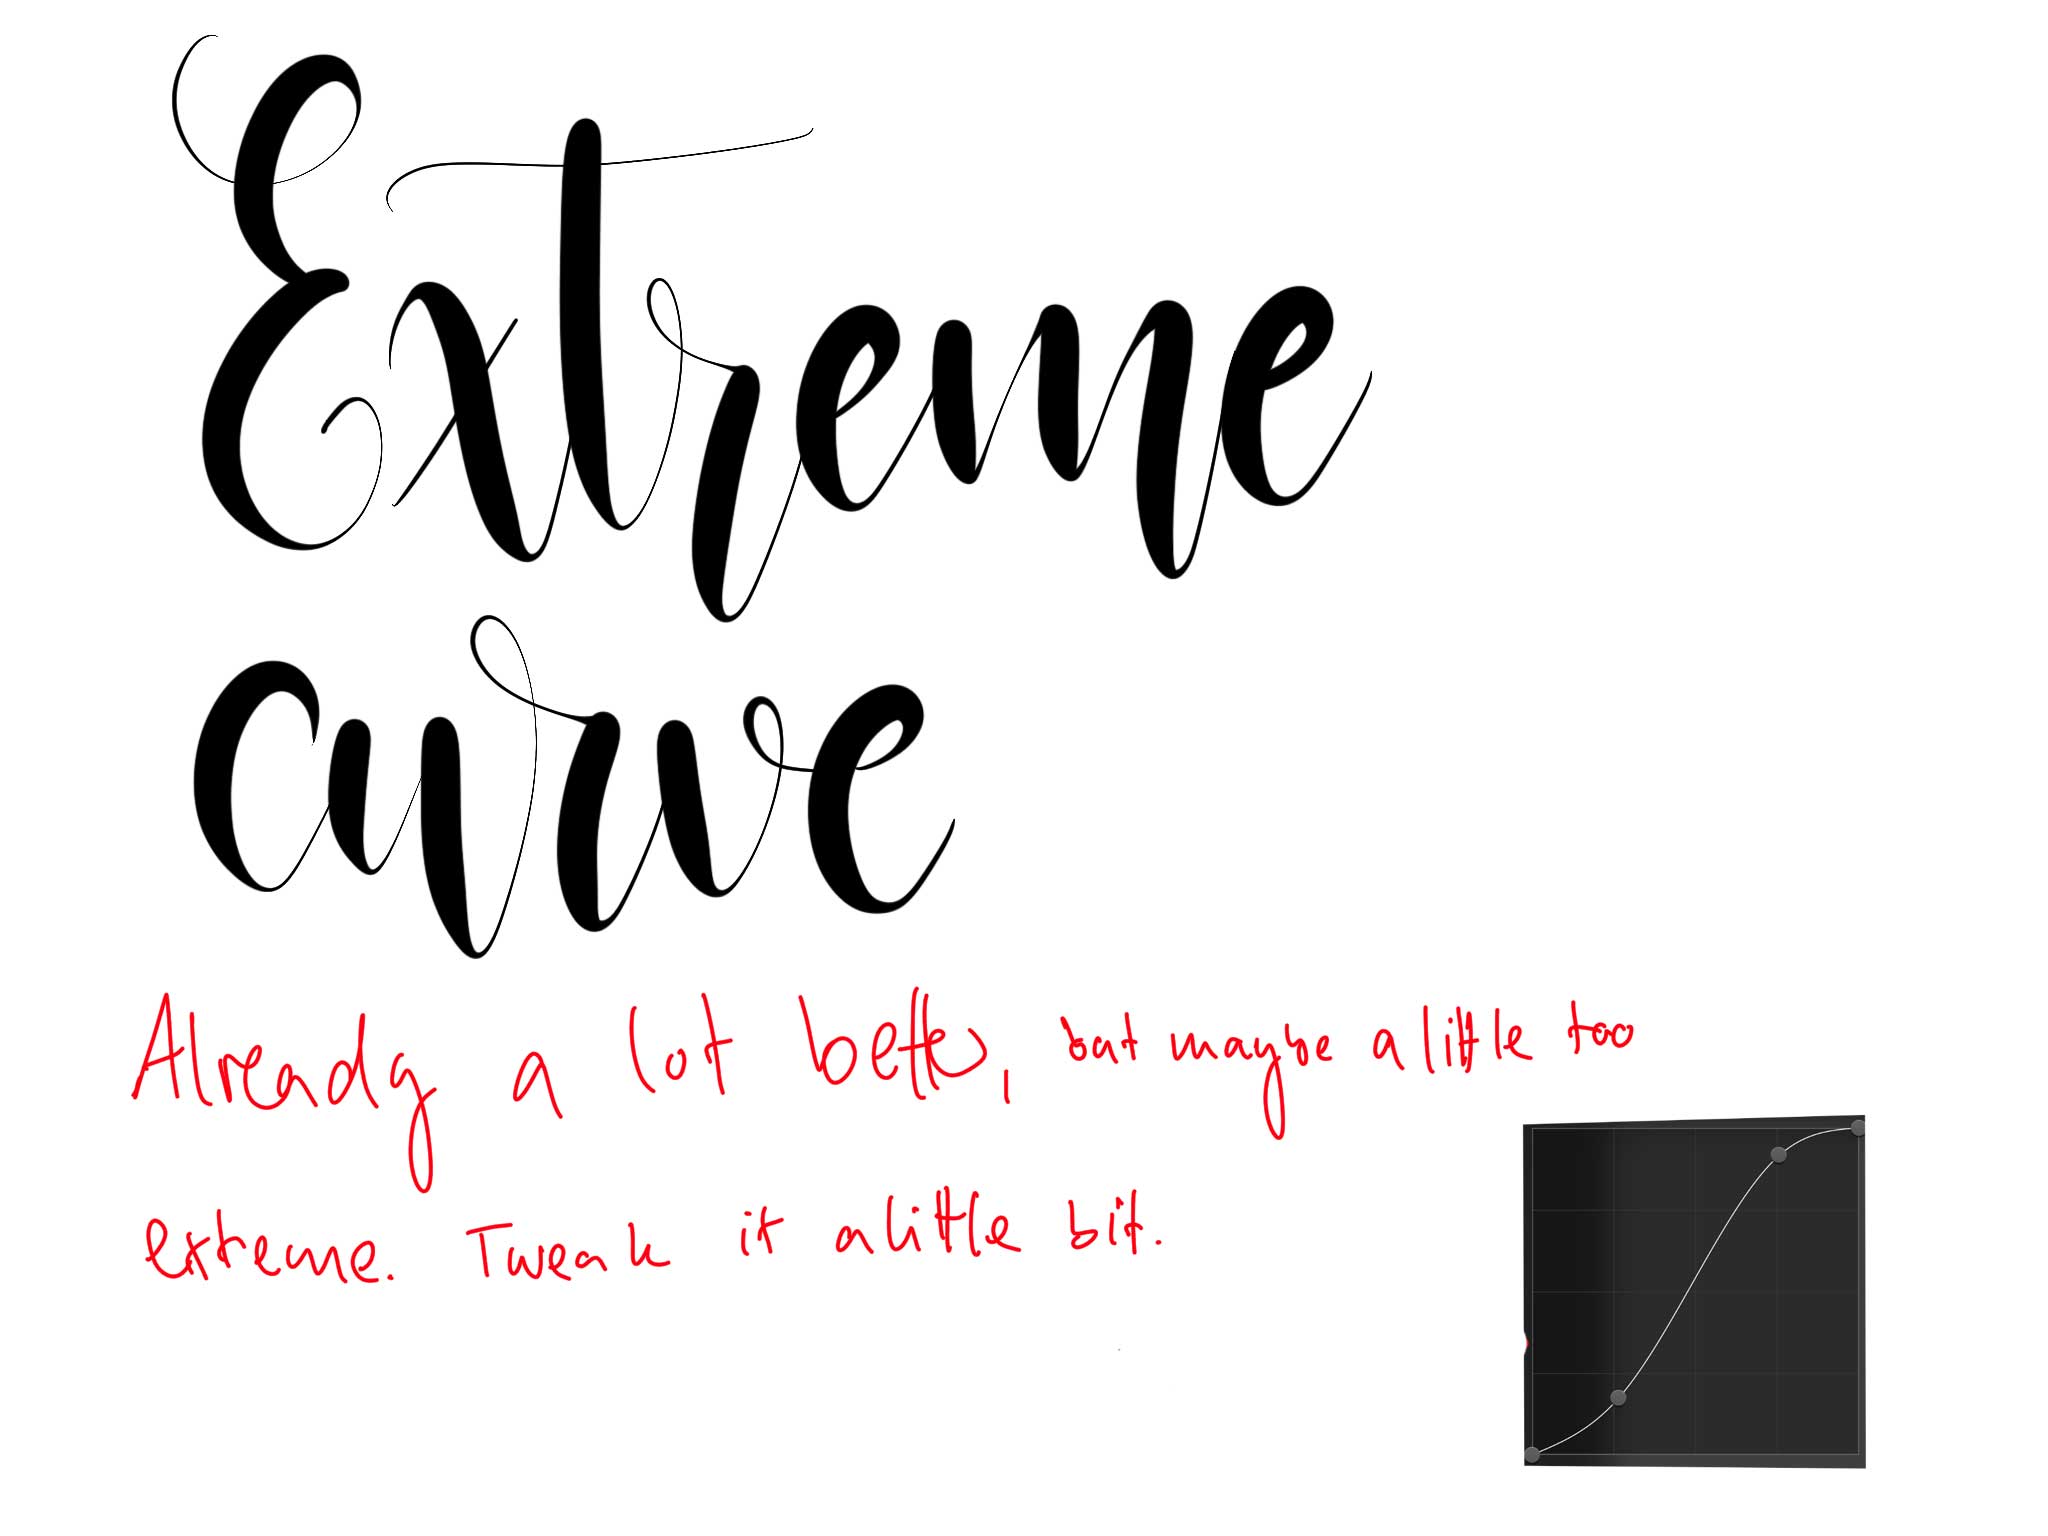 Extreme
curve
Already a lot better, but maybe a little too
extreme. Tweak it a little bit.